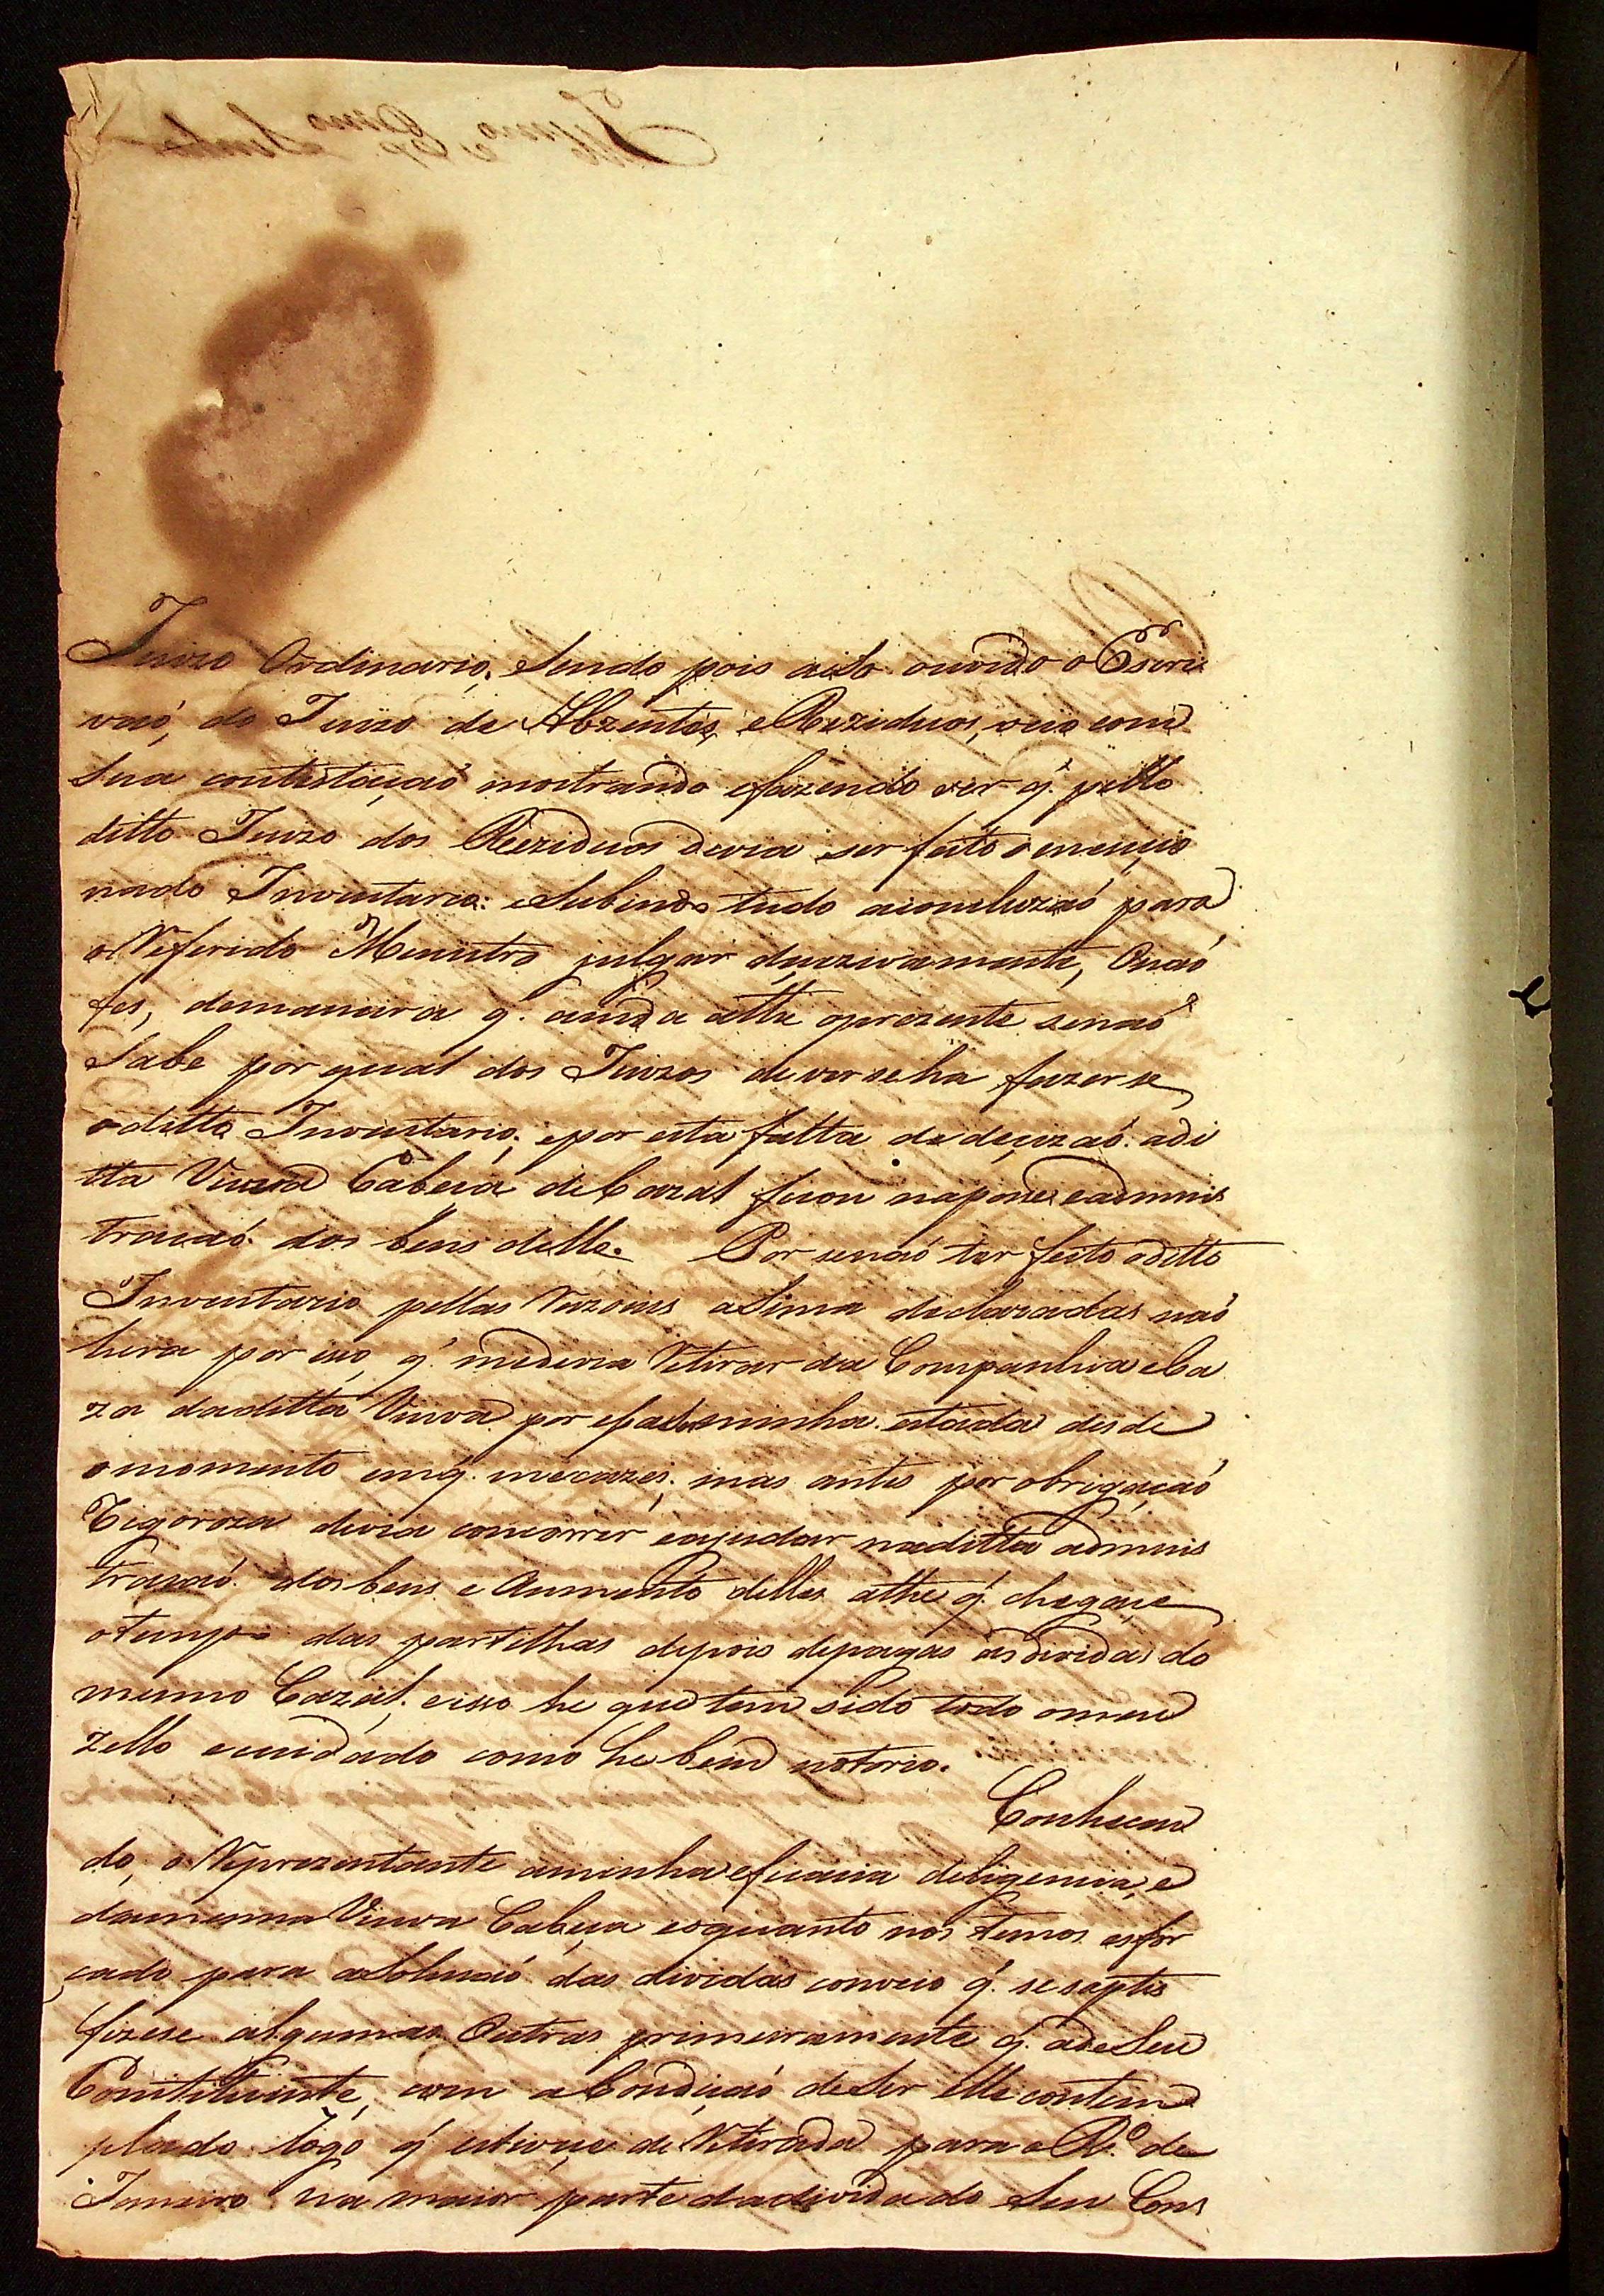 Juizo Ordinario, eSendo pois aisto ouvido o Escri
vaó, do Juizo de Abzentes, e Reziduos, veio com
Sua contestaçaó mostrando efazendo ver q̃. pello
ditto Juizo dos Reziduos devia ser feito o mencio
nado Inventario: eSubindo tudo aconcluzaó para
o Referido Menistro julgar dicizivamente, Onaó
fes, demaneira q̃. ainda athe oprezente senaó
Sabe por qual dos Juizos deverseha fazer se
oditto Inventario; epor esta falta de decizaó adi
tta Viuva Cabeça deCazal ficou naposse eadminis
traçaó dos bens delle. Por senaó ter feito oditto
Inventario pellas Razoens aSima declaradas naó
hera por isso q̃. medevia Retirar da Companhia eCa
za daditta Viuva por eſpaſominha estada desde
omomento emq̃. mecazei; mas antes por obrigaçaó
Rigoroza devia concorrer eajudar naditta adminis
traçaó dos bens e Aumento delles athe q̃. chegaçe
otempo das partilhas depois depagas asdividas do
mesmo Cazal, eisso he que tem sido todo omeu
zello ecuidado como he bem notorio.
Conhecen
do, o Reprezentante aminha eficacia deligencia, e
damesma Viuva Cabeça eoquanto nos temos esfor
çado para aSoluçaó das dividas conveio q̃. se saptis
fizese algumas Outras primeiramente q̃. ade Seu
Constituinte, com aCondiçaó deSer elle contem
plado logo q̃ estiveçe de Retirada para o Rº. de
Janeiro na maior parte dadivida do Seu Cons